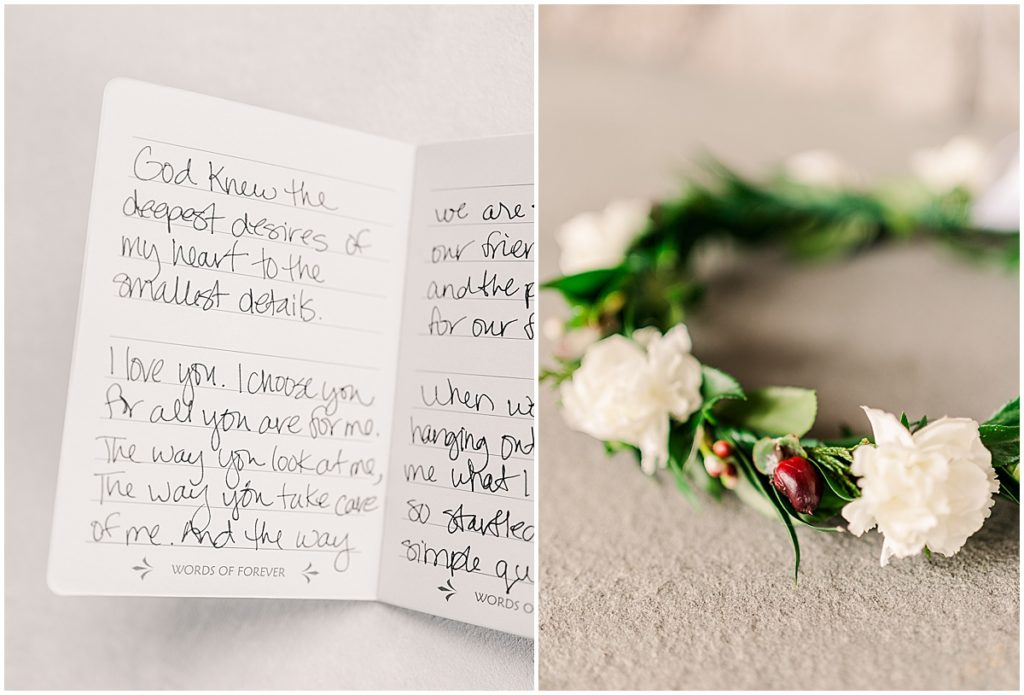 God knew the
deepest desires of
my heart to the
smallest details.
I love you. I choose you
for all you are for me.
The way you look at me,
The way you take care
of me. And the way
WORDS OF FOREVER
we are
our
and the
for our
When
hanging
me what I
so startled
simple
WORDS